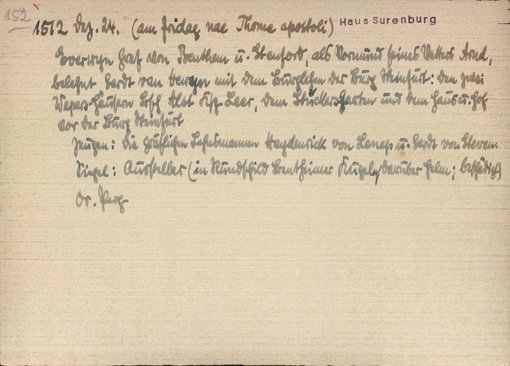 152
1512 Dez. 24. (am fridag nae Thome apostoli) Haus Surenburg
Everwyn Graf von Benthem u. Stenford, als Vormund seines Vetters Arnd,
belehnt Gerdt van Hewen mit dem Burglehen der Burg Steinfurt: den zwei
Wepers-Häusern Bsch. Ulst Ksp. Leer, dem Stückersgarten und dem Haus u. Hof
vor der Burg Steinfurt
Zeugen: Die gräflichen Lehnsmannen Heydenrick von Lenepp u. Gerdt von Stevern
Siegel: Aussteller (in Rundschild Bentheimer Kugeln, darüber Helm; beschädigt)
Or. Perg.